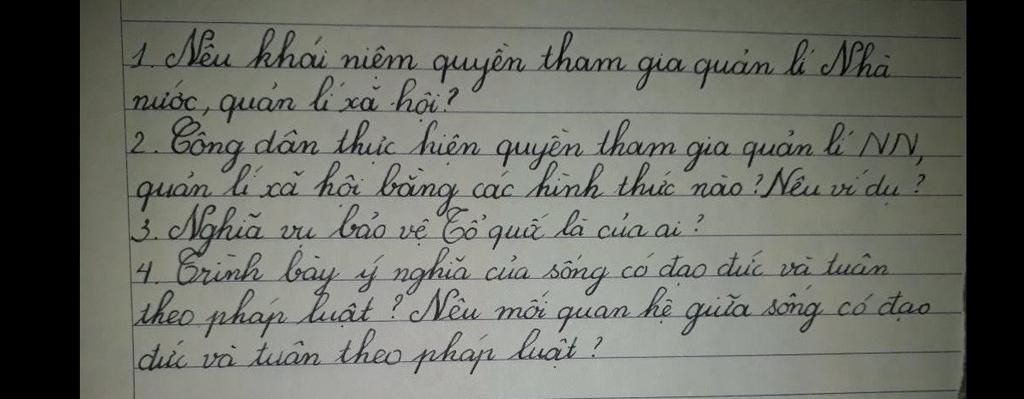 1. Nêu khái niệm quyền tham gia quản lí Nhà
nước, quản lí xã hội?
2. Công dân thực hiện quyền tham gia quản lí NN,
quản lí xã hội bằng các hình thức nào? Nêu ví dụ?
3. Nghĩa vụ bảo vệ Tổ quốc là của ai?
4. Trình bày ý nghĩa của sống có đạo đức và tuân
theo pháp luật? Nêu mối quan hệ giữa sống có đạo
đức và tuân theo pháp luật?